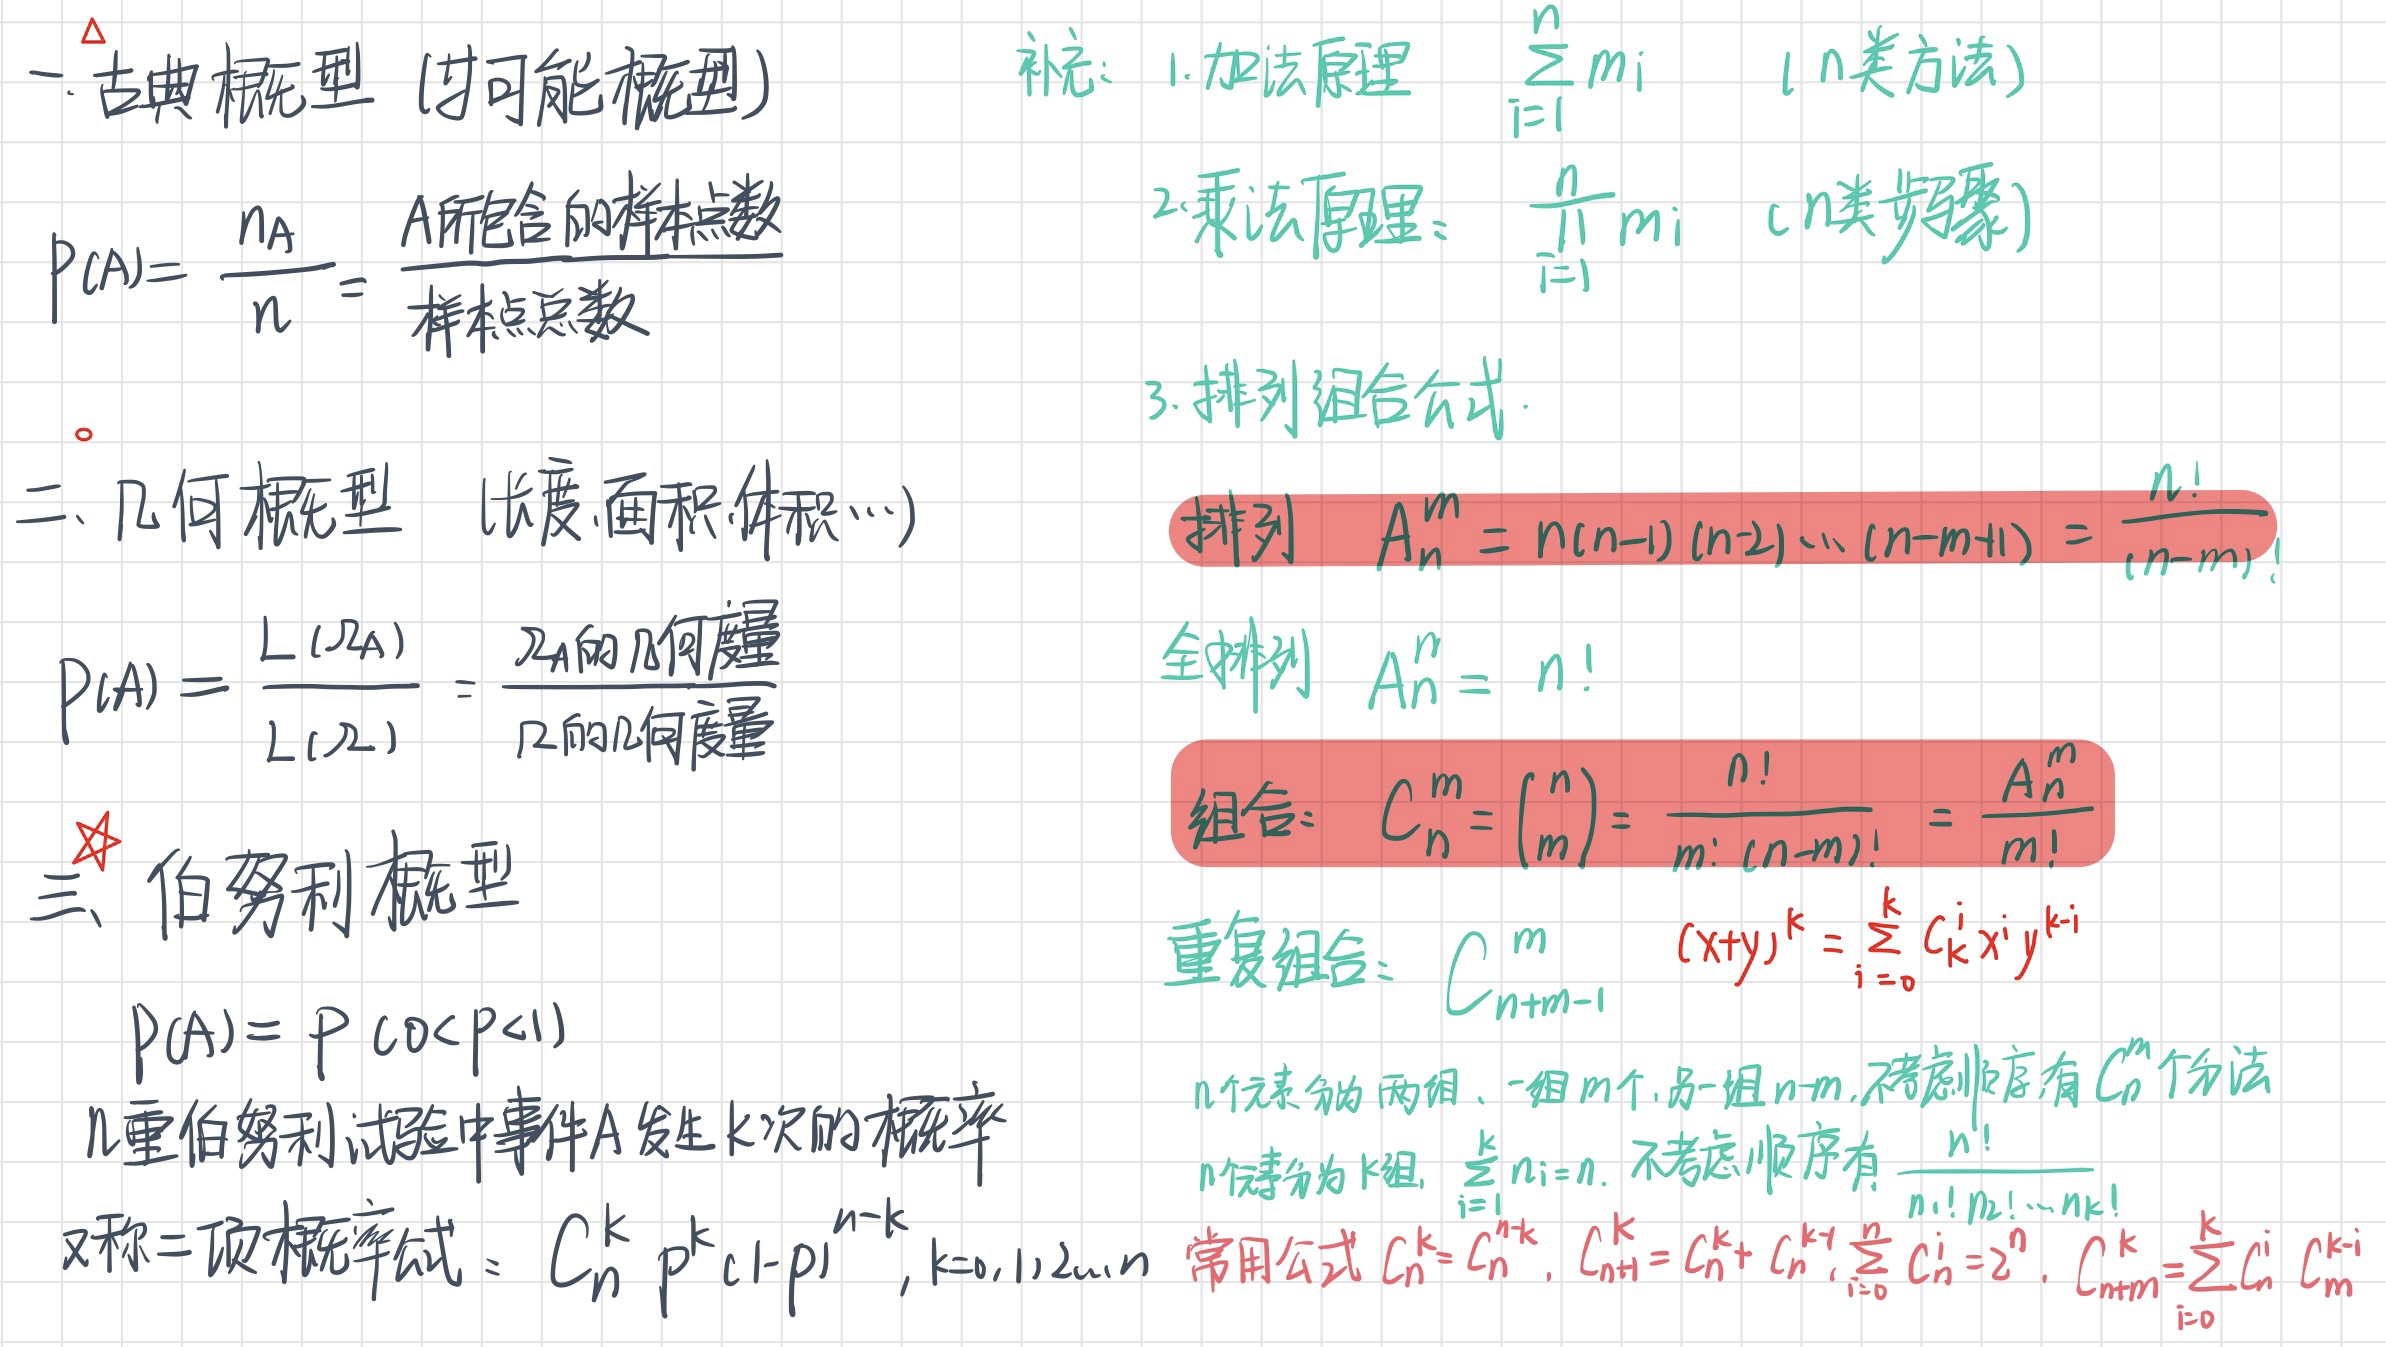 一.古典概型 (等可能概型)
P(A)= n_A / n = A所包含的样本点数 / 样本点总数
二、几何概型 (长度、面积、体积…)
P(A) = L(Ω_A) / L(Ω) = Ω_A的几何度量 / Ω的几何度量
三、伯努利概型
P(A) = P (0<P<1)
n重伯努利试验中事件A发生k次的概率
又称二项概率公式: C_n^k p^k (1-p)^{n-k}, k=0,1,2…,n
补充: 1.加法原理 ∑_{i=1}^n m_i (n类方法)
2.乘法原理: ∏_{i=1}^n m_i (n类步骤)
3.排列组合公式.
排列 A_n^m = n(n-1)(n-2)…(n-m+1) = n! / (n-m)!
全排列 A_n^n = n!
组合: C_n^m = (n m) = n! / m!(n-m)! = A_n^m / m!
重复组合: C_{n+m-1}^m
(x+y)^k = ∑_{i=0}^k C_k^i x^i y^{k-i}
n个元素分为两组、一组m个,另一组n-m,不考虑顺序,有C_n^m个分法
n个元素分为k组, ∑_{i=1}^k n_i=n. 不考虑顺序有 n! / n_1! n_2! … n_k!
常用公式 C_n^k = C_n^{n-k}, C_{n+1}^k = C_n^k + C_n^{k-1}, ∑_{i=0}^n C_n^i = 2^n, C_{n+m}^k = ∑_{i=0}^k C_n^i C_m^{k-i}